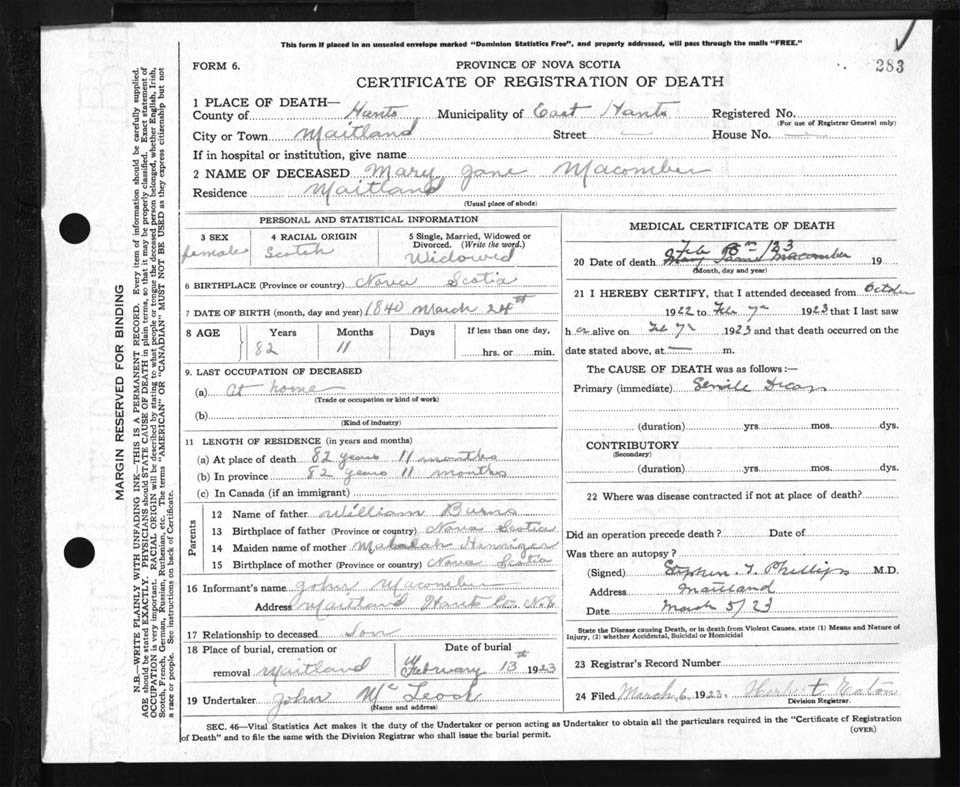 This form if placed in an unsealed envelope marked "Dominion Statistics Free", and properly addressed, will pass through the mails "FREE."
283
FORM 6.
PROVINCE OF NOVA SCOTIA
CERTIFICATE OF REGISTRATION OF DEATH
1 PLACE OF DEATH—
County of Hants Municipality of East Hants Registered No.
(For use of Registrar General only)
City or Town Maitland Street — House No. —
If in hospital or institution, give name
2 NAME OF DECEASED Mary Jane Macomber
Residence Maitland
(Usual place of abode)
PERSONAL AND STATISTICAL INFORMATION
3 SEX 4 RACIAL ORIGIN 5 Single, Married, Widowed or Divorced. (Write the word.)
female Scotch Widowed
6 BIRTHPLACE (Province or country) Nova Scotia
7 DATE OF BIRTH (month, day and year) 1840 March 24th
8 AGE Years Months Days If less than one day,
82 11 hrs. or min.
9. LAST OCCUPATION OF DECEASED
(a) At home
(Trade or occupation or kind of work)
(b)
(Kind of industry)
11 LENGTH OF RESIDENCE (in years and months)
(a) At place of death 82 years 11 months
(b) In province 82 years 11 months
(c) In Canada (if an immigrant)
Parents
12 Name of father William Burns
13 Birthplace of father (Province or country) Nova Scotia
14 Maiden name of mother Mahalah Henniger
15 Birthplace of mother (Province or country) Nova Scotia
16 Informant's name John Macomber
Address Maitland Hants Co. N.S.
17 Relationship to deceased Son
18 Place of burial, cremation or removal Maitland
Date of burial
February 13th 1923
19 Undertaker John
(Name and address)
MEDICAL CERTIFICATE OF DEATH
Feb /23
20 Date of death Macomber 19
(Month, day and year)
21 I HEREBY CERTIFY, that I attended deceased from October
1922 to Feb 7th 1923 that I last saw
h er alive on Feb 7th 1923 and that death occurred on the
date stated above, at — m.
The CAUSE OF DEATH was as follows:—
Primary (immediate) Senile
(duration) yrs. mos. dys.
CONTRIBUTORY
(Secondary)
(duration) yrs. mos. dys.
22 Where was disease contracted if not at place of death?
Did an operation precede death? Date of
Was there an autopsy?
(Signed) Stephen T. Phillips M.D.
Address Maitland
Date March 5/23
State the Disease Causing Death, or in death from Violent Causes, state (1) Means and Nature of
Injury, (2) whether Accidental, Suicidal or Homicidal
23 Registrar's Record Number
24 Filed March 6 1923. Herbert Eaton
Division Registrar.
SEC. 46—Vital Statistics Act makes it the duty of the Undertaker or person acting as Undertaker to obtain all the particulars required in the "Certificate of Registration
of Death" and to file the same with the Division Registrar who shall issue the burial permit.
(OVER)
MARGIN RESERVED FOR BINDING
N.B.—WRITE PLAINLY WITH UNFADING INK—THIS IS A PERMANENT RECORD. Every item of information should be carefully supplied.
AGE should be stated EXACTLY. PHYSICIANS should STATE CAUSE OF DEATH in plain terms, so that it may be properly classified. Exact statement of
OCCUPATION is very important. RACIAL ORIGIN will be described by stating to what people or tongue the deceased person belonged, whether English, Irish,
Scotch, French, German, Russian, Ruthenian, etc. The terms "AMERICAN" OR "CANADIAN" MUST NOT BE USED as they express citizenship but not
a race or people. See instructions on back of Certificate.